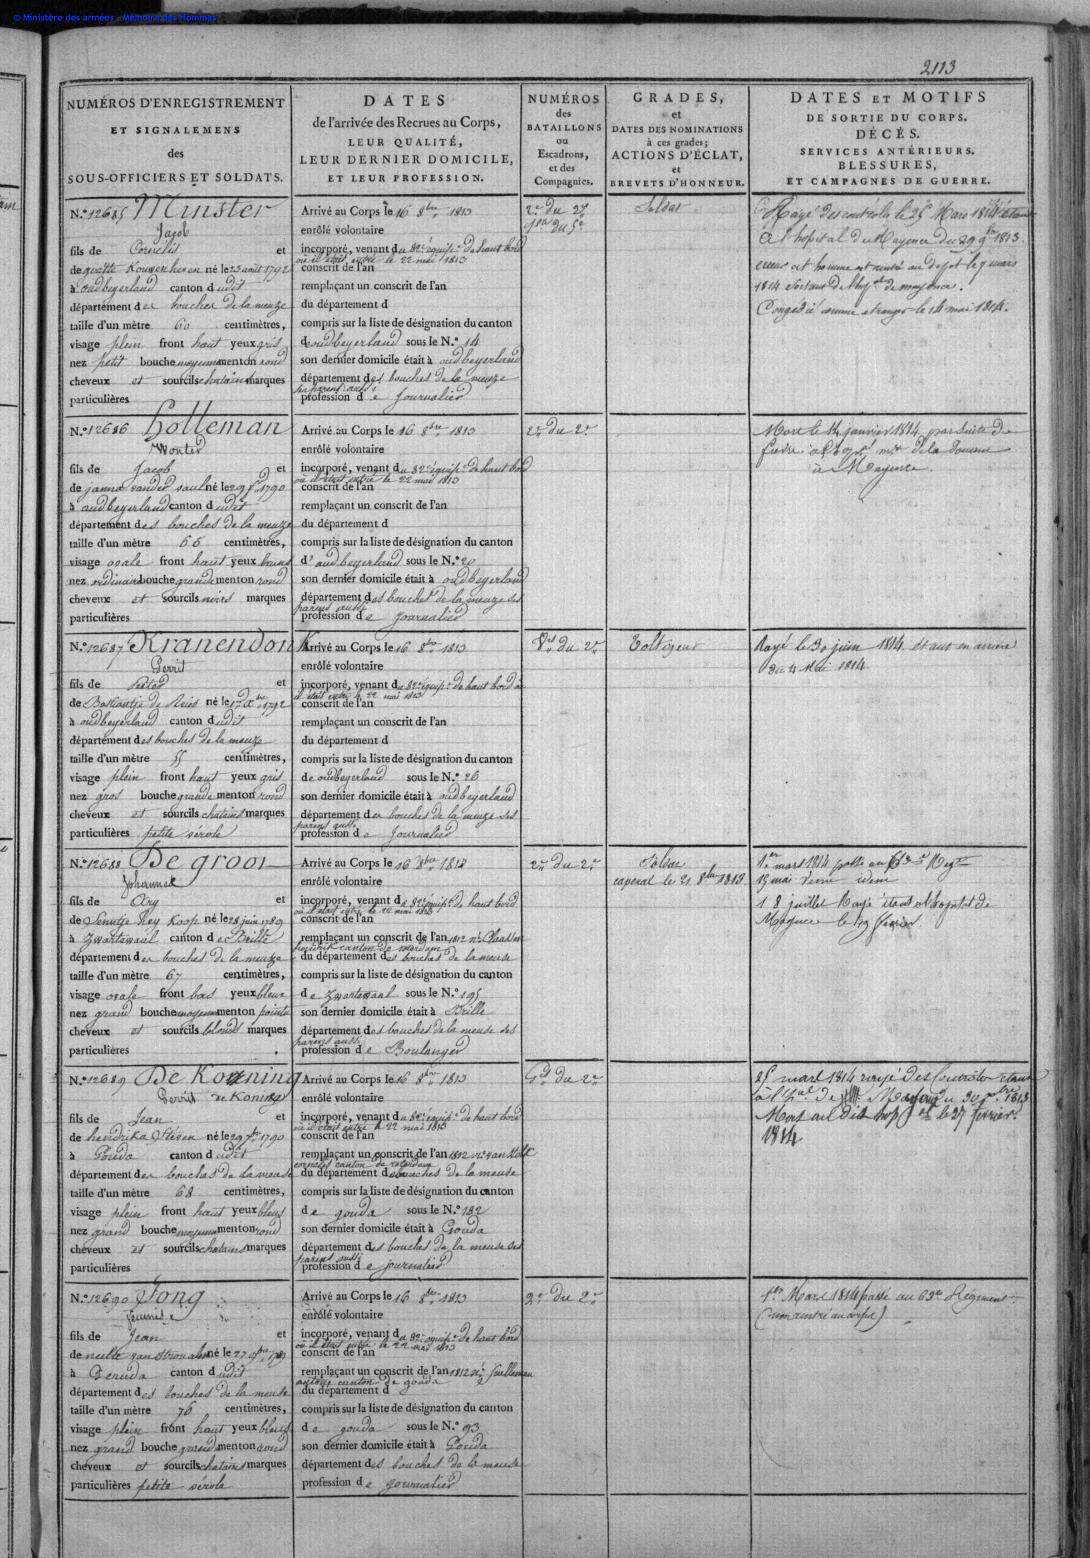 © Ministère des armées - Mémoire des Hommes
2113
NUMÉROS D'ENREGISTREMENT
ET SIGNALEMENS
des
SOUS-OFFICIERS ET SOLDATS.
DATES
de l'arrivée des Recrues au Corps,
LEUR QUALITÉ,
LEUR DERNIER DOMICILE,
ET LEUR PROFESSION.
NUMÉROS
des
BATAILLONS
ou
Escadrons,
et des
Compagnies.
GRADES,
et
DATES DES NOMINATIONS
à ces grades;
ACTIONS D'ÉCLAT,
et
BREVETS D'HONNEUR.
DATES ET MOTIFS
DE SORTIE DU CORPS.
DÉCÈS.
SERVICES ANTÉRIEURS.
BLESSURES,
ET CAMPAGNES DE GUERRE.
N.º 12685 Munster
Jacob
fils de Cornelis et
né le 23 août 1792
à oudbeyerland canton d udit
département des bouches de la meuze
taille d'un mètre 60 centimètres,
visage plein front haut yeux gris
nez petit bouche moyenne menton rond
cheveux et sourcils chatains marques
particulières
Arrivé au Corps le 16 8bre 1813
enrôlé volontaire
incorporé, venant du 82e équipe de haut bord
où il était entré le 22 mai 1813
conscrit de l'an
remplaçant un conscrit de l'an
du département d
compris sur la liste de désignation du canton
d'oudbeyerland sous le N.º 14
son dernier domicile était à oudbeyerland
département des bouches de la meuze
ses parens aussi
profession de journalier
2e du 2e
Soldat
Rayé des controle le 25 Mars 1814 étant
à l'hopital de Mayence du 29 9bre 1813.
erreur cet homme est rentré au depot le 9 mars
1814
Congédié comme etranger le 14 mai 1814.
N.º 12686 Holleman
Wouter
fils de Jacob et
de janna vander saul né le 29 1790
à oudbeyerland canton d udit
département des bouches de la meuze
taille d'un mètre 66 centimètres,
visage ovale front haut yeux bruns
nez ordinaire bouche grande menton rond
cheveux et sourcils noirs marques
particulières
Arrivé au Corps le 16 8bre 1813
enrôlé volontaire
incorporé, venant du 82e équipe de haut bord
où il était entré le 22 mai 1813
conscrit de l'an
remplaçant un conscrit de l'an
du département d
compris sur la liste de désignation du canton
d'oudbeyerland sous le N.º 20
son dernier domicile était à oudbeyerland
département des bouches de la meuze ses
parens aussi
profession de journalier
2e du 2e
Mort le 14 janvier 1814, par suite de
fievre à de la Douane
à Mayence.
N.º 12687 Kranendonk
Gerrit
fils de Pieter et
né le 1792
à oudbeyerland canton d udit
département des bouches de la meuze
taille d'un mètre 55 centimètres,
visage plein front haut yeux gris
nez gros bouche grande menton rond
cheveux et sourcils chatains marques
particulières petite vérole
Arrivé au Corps le 16 8bre 1813
enrôlé volontaire
incorporé, venant du 82e équipe de haut bord où
il était entré le 22 mai 1813
conscrit de l'an
remplaçant un conscrit de l'an
du département d
compris sur la liste de désignation du canton
de oudbeyerland sous le N.º 26
son dernier domicile était à oudbeyerland
département des bouches de la meuze ses
parens aussi
profession de journalier
du 2e
Voltigeur
Rayé le 30 juin 1814 étant en arriere
du 4 Mai 1814.
N.º 12688 De groot
Johannes
fils de Ary et
né le 28 juin 1789
à Zwartewaal canton de Brille
département des bouches de la meuze
taille d'un mètre 67 centimètres,
visage ovale front bas yeux bleus
nez grand bouche moyenne menton pointu
cheveux et sourcils blonds marques
particulières
Arrivé au Corps le 16 8bre 1813
enrôlé volontaire
incorporé, venant du 82e équipe de haut bord
où il était entré le 22 mai 1813
conscrit de l'an
remplaçant un conscrit de l'an 1812
canton de
du département des bouches de la meuse
compris sur la liste de désignation du canton
de Zwartewaal sous le N.º 195
son dernier domicile était à Brille
département des bouches de la meuse ses
parens aussi
profession de Boulanger
2e du 2e
Soldat
caporal le 21 8bre 1813
1er mars 1814 passé au 63e Regt
13 mai idem
18 juillet Rayé étant à l'hopital de
Mayence le 19 février.
N.º 12689 De Koning
Gerrit de Koning
fils de Jean et
de hendrika né le 29 1790
à Gouda canton d udit
département des bouches de la meuse
taille d'un mètre 68 centimètres,
visage plein front haut yeux bleus
nez grand bouche moyenne menton rond
cheveux et sourcils chatains marques
particulières
Arrivé au Corps le 16 8bre 1813
enrôlé volontaire
incorporé, venant du 82e équipe de haut bord
où il était entré le 22 mai 1813
conscrit de l'an
remplaçant un conscrit de l'an 1812
canton de rotterdam
du département des bouches de la meuse
compris sur la liste de désignation du canton
de gouda sous le N.º 182
son dernier domicile était à Gouda
département des bouches de la meuse ses
parens aussi
profession de journalier
du 2e
25 mars 1814 rayé des Controles étant
à l'hal de Mayence du 30 1813
Mort au dit hopal le 27 fevrier
1814
N.º 12690 Jong
fils de Jean et
né le 27
à Gouda canton d udit
département des bouches de la meuse
taille d'un mètre 76 centimètres,
visage plein front haut yeux bleus
nez grand bouche grande menton rond
cheveux et sourcils chatains marques
particulières petite vérole
Arrivé au Corps le 16 8bre 1813
enrôlé volontaire
incorporé, venant du 82e équipe de haut bord
où il était entré le 22 mai 1813
conscrit de l'an
remplaçant un conscrit de l'an 1812
canton de gouda
du département d
compris sur la liste de désignation du canton
de gouda sous le N.º 93
son dernier domicile était à Gouda
département des bouches de la meuse
profession de journalier
2e du 2e
1er Mars 1814 passé au 63e Regiment